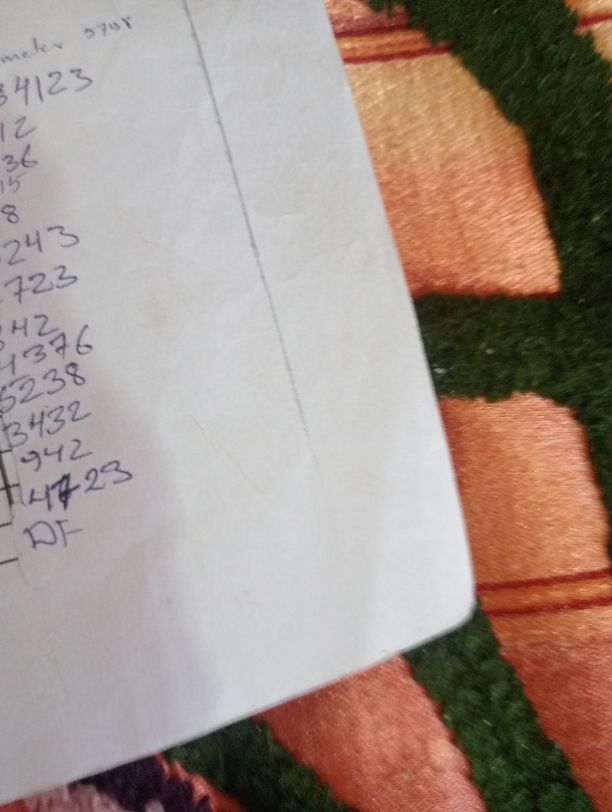 meter 9798
34123
12
36
15
8
243
723
342
4376
5238
3432
942
14723
DF